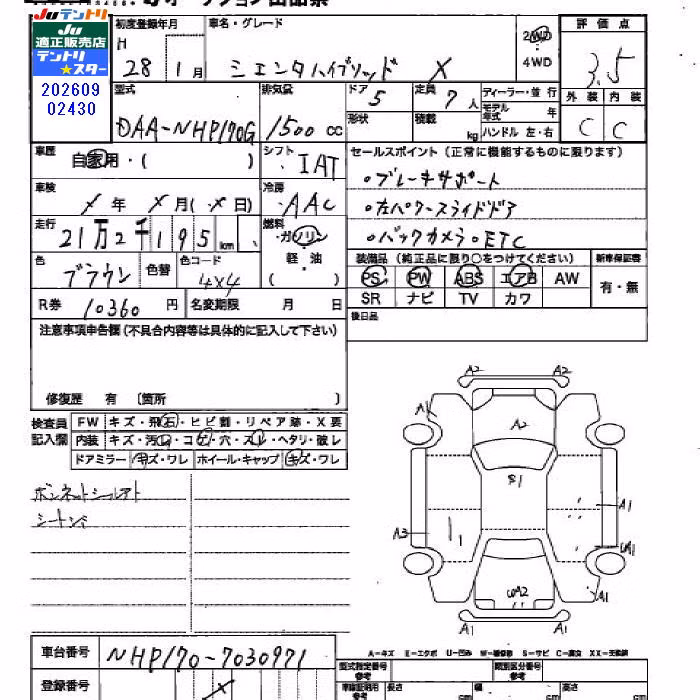 JUテントリ
適正販売店
テントリ
★スター
202609
02430
初度登録年月
H
28 1月
車名・グレード
シエンタハイブリッド X
2WD
4WD
評価点
3.5
外装 内装
C C
型式
DAA-NHP170G
排気量
1500 cc
ドア
5
形状
定員
7人
積載
kg
ディーラー・並行
モデル年式 年
ハンドル 左・右
車歴
自家用・( )
シフト
IAT
セールスポイント (正常に機能するものに限ります)
・ブレーキサポート
・左パワースライドドア
・バックカメラ・ETC
車検
X年 X月(X日)
冷房
AAC
走行
21万2千195km
燃料
ガソリン
軽・油
( )
色
ブラウン
色替
色コード
4X4
装備品 (純正品に限り○をつけてください)
PS PW ABS エアB AW
SR ナビ TV カワ
新車保証書
有・無
R券 10360円
名変期限 月 日
後日品
注意事項申告欄 (不具合内容等は具体的に記入して下さい)
修復歴 有 〔箇所 〕
検査員
記入欄
FW キズ・飛石・ヒビ割・リペア跡・X要
内装 キズ・汚れ・コゲ・穴・スレ・ヘタリ・破レ
ドアミラー キズ・ワレ ホイール・キャップ キズ・ワレ
A2 A2
A1
A2
S1
A1
A3
1
UA1
UA2
A1
A1 A1
A-キズ E-エクボ U-凹み W-補修跡 S-サビ C-腐食 XX-交換済
車台番号
NHP170-7030971
登録番号
型式指定番号
参考
類別区分番号
参考
長さ cm
幅 cm
高さ cm